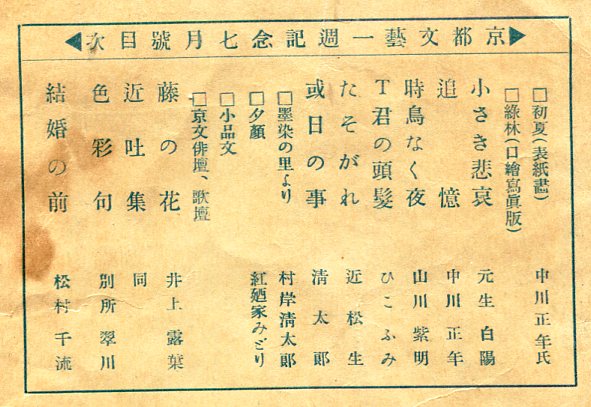 京都文藝一週記念七月號目次
□初夏(表紙畵) 中川正年氏
□綠林(口繪寫眞版)
小さき悲哀 元生白陽
追憶 中川正年
時鳥なく夜 山川紫明
T君の頭髮 ひこふみ
たそがれ 近松生
或日の事 淸太郞
□墨染の里より 村岸淸太郞
□夕顏 紅廼家みどり
□小品文
□京文俳壇、歌壇
藤の花 井上露葉
近吐集 同
色彩句 別所翠川
結婚の前 松村千流